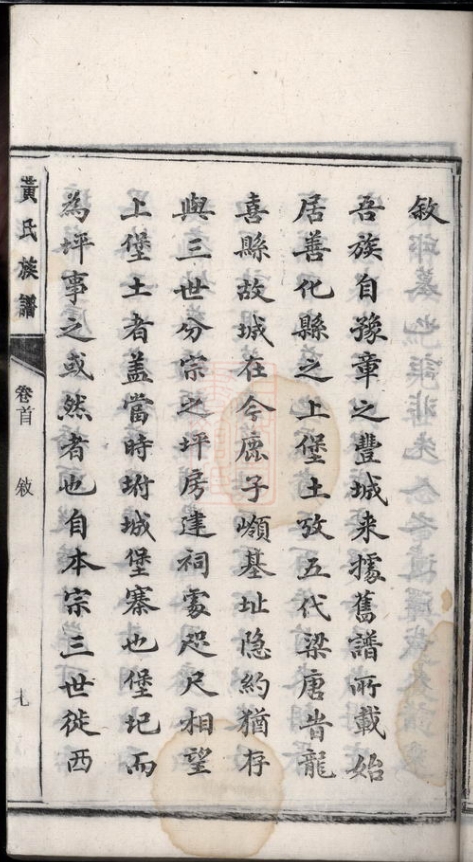 敘
吾族自豫章之豐城来據舊譜所載始
居善化縣之上堡土攷五代梁唐昔龍
喜縣故城在今鹿子嶺基址隐約猶存
與三世分宗之坪房建祠處咫尺相望
上堡土者盖當時坿城堡寨也堡圮而
為坪事之或然者也自本宗三世徙西
黃氏族譜
卷首
敘
九